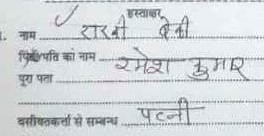 हस्ताक्षर
1. नाम राखी देवी
पिता/पति का नाम रमेश कुमार
पुरा पता
वसीयतकर्ता से सम्बन्ध पत्नी